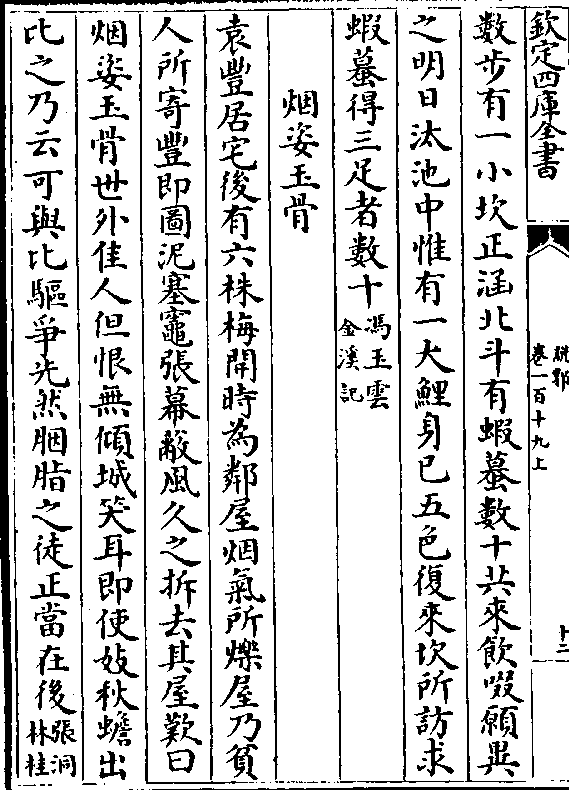 欽定四庫全書
說郛
卷一百十九上
十二
數步有一小坎正涵北斗有蝦蟇數十共來飲啜願異
之明日汰池中惟有一大鯉身已五色復來坎所訪求
蝦蟇得三足者數十馮玉雲
金溪記
烟姿玉骨
袁豐居宅後有六株梅開時為鄰屋烟氣所爍屋乃貧
人所寄豐即圖泥塞竈張幕蔽風久之拆去其屋歎曰
烟姿玉骨世外佳人但恨無傾城笑耳即使妓秋蟾出
比之乃云可與比驅爭光然胭脂之徒正當在後張洞
林桂